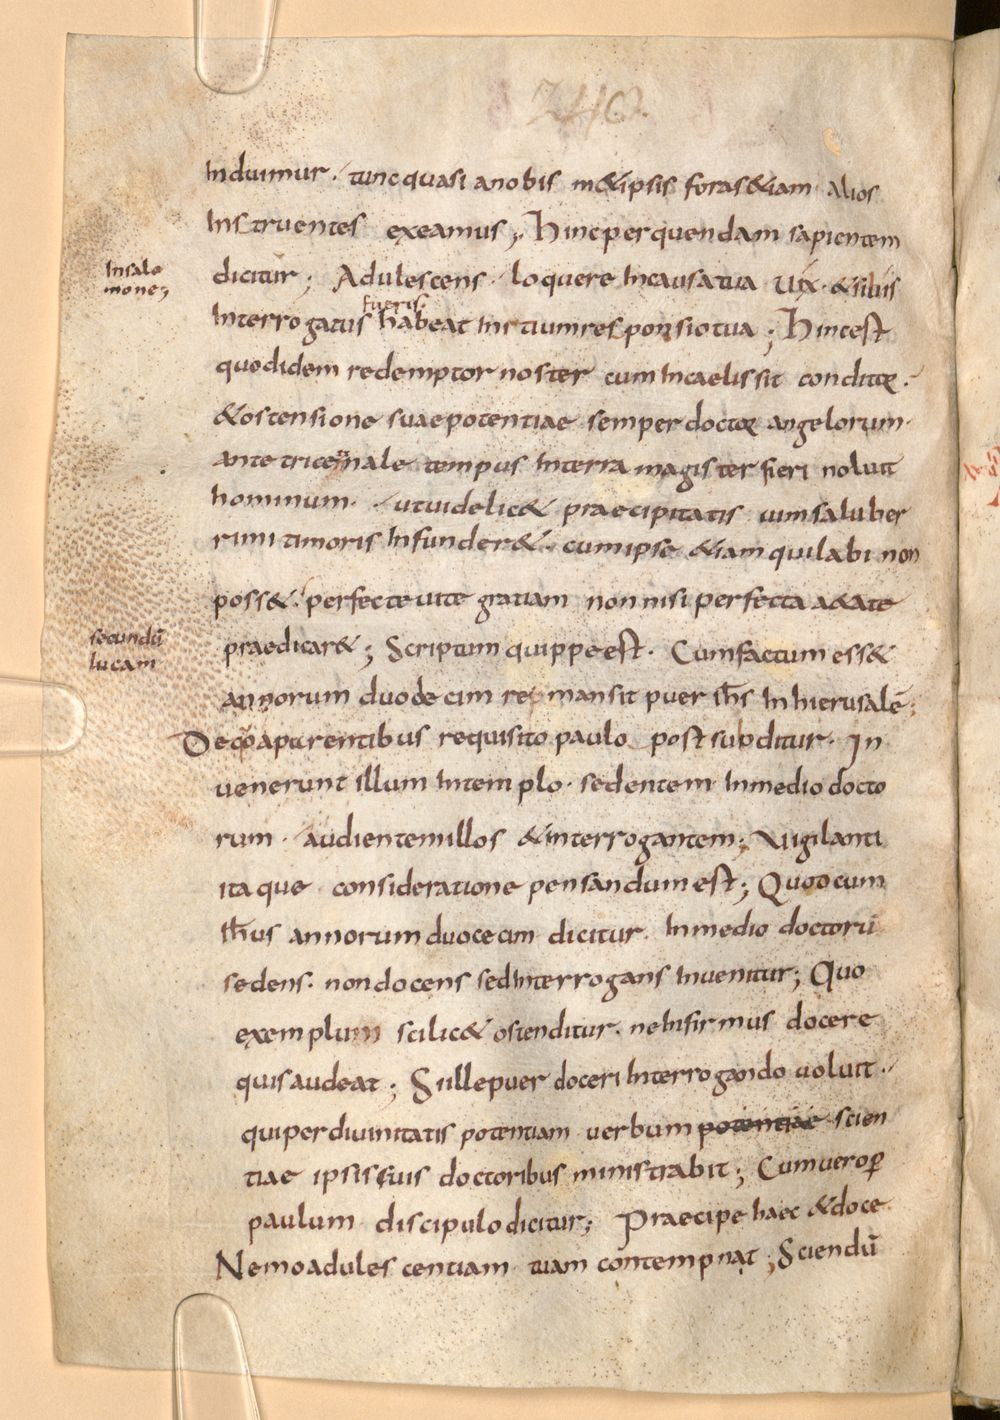 240.
Induimur. tunc quasi anobis m&ipsis foras&iam alios
Instruentes exeamus; Hincperquendam sapientem
dicitur; Adulescens loquere Incausatua uix. &sibis
Insalo
mone;
fueris.
Interrogatus habeat Initiumresponsiotua; Hincest
quodidem redemptor noster cum Incaelissit conditor.
&ostensione suaepotentiae semper doctor angelorum.
ante tricennale tempus Interra magister fieri noluit
hominum. utuidelic& praecipitatis uimsaluber
rimi timoris Infunder&. cumipse &iam quilabi non
poss&. perfecte uite gratiam non nisi perfecta a&ate
secundū
lucam
praedicar&; Scriptum quippe est. Cumfactum ess&
annorum duodecim remansit puer ihs Inhierusalē;
Dequoaparentibus requisito paulo post subditur. In
uenerunt illum Intemplo. sedentem Inmedio docto
rum. audientemillos &interrogantem; Vigilanti
itaque consideratione pensandum est; Quodcum
ihsus annorum duocecim dicitur. Inmedio doctorū
sedens. nondocens sedInterrogans Inuenitur; Quo
exemplum scilic& ostenditur. neInfirmus docere
quisaudeat; Siillepuer doceri Interrogando uoluit.
quiperdiuinitatis potentiam uerbum potentiae scien
tiae ipsis suis doctoribus ministrabit; Cumuerop
paulum discipulo dicitur; Praecipe haec &doce
Nemoadulescentiam tuam contempnat; Sciendū